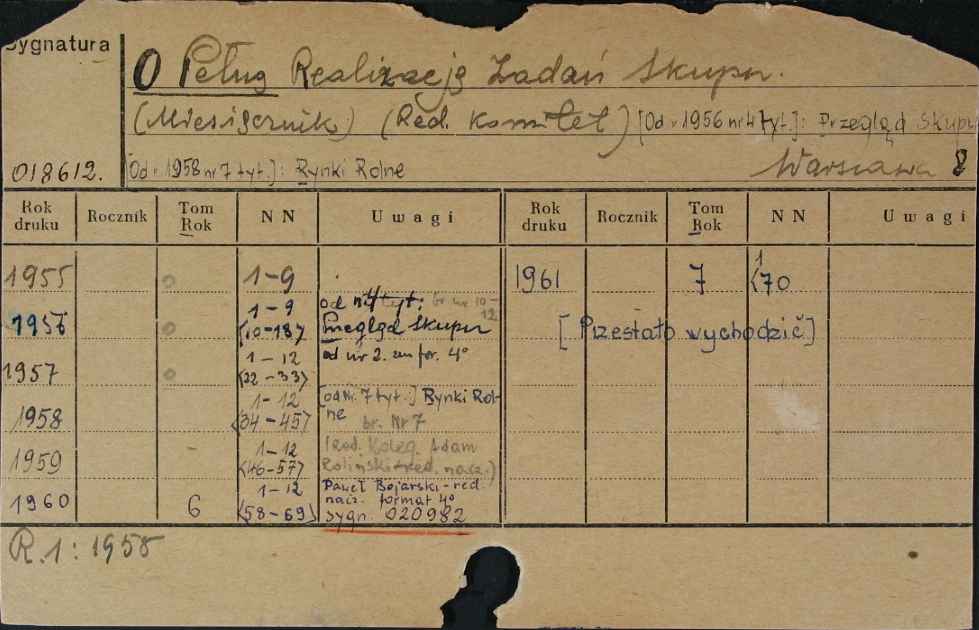 Sygnatura
O Pełną Realizację Zadań Skupu.
(Miesięcznik) (Red. Komitet) [Od r. 1956 nr 4 tyt.]: Przegląd Skupu
018612. [Od r. 1958 nr 7 tyt.]: Rynki Rolne Warszawa 8
Rok druku Rocznik Tom Rok NN Uwagi Rok druku Rocznik Tom Rok NN Uwagi
1955 0 1-9 1961 7 1 <70
1956 0 1-9 <10-18> od nr 4 tyt: br nr 10-12 Przegląd Skupu [Przestało wychodzić]
1957 0 1-12 <22-33> od nr 2. zm for. 4°
1958 1-12 <34-45> [od Nr. 7 tyt.:] Rynki Rolne br. Nr 7
1959 - 1-12 <46-57> (Red. Koleg. Adam Roliński-red. nacz.)
1960 6 1-12 <58-69> Paweł Bojarski-red. nacz. format 4° sygn. 020982
R.1: 1958